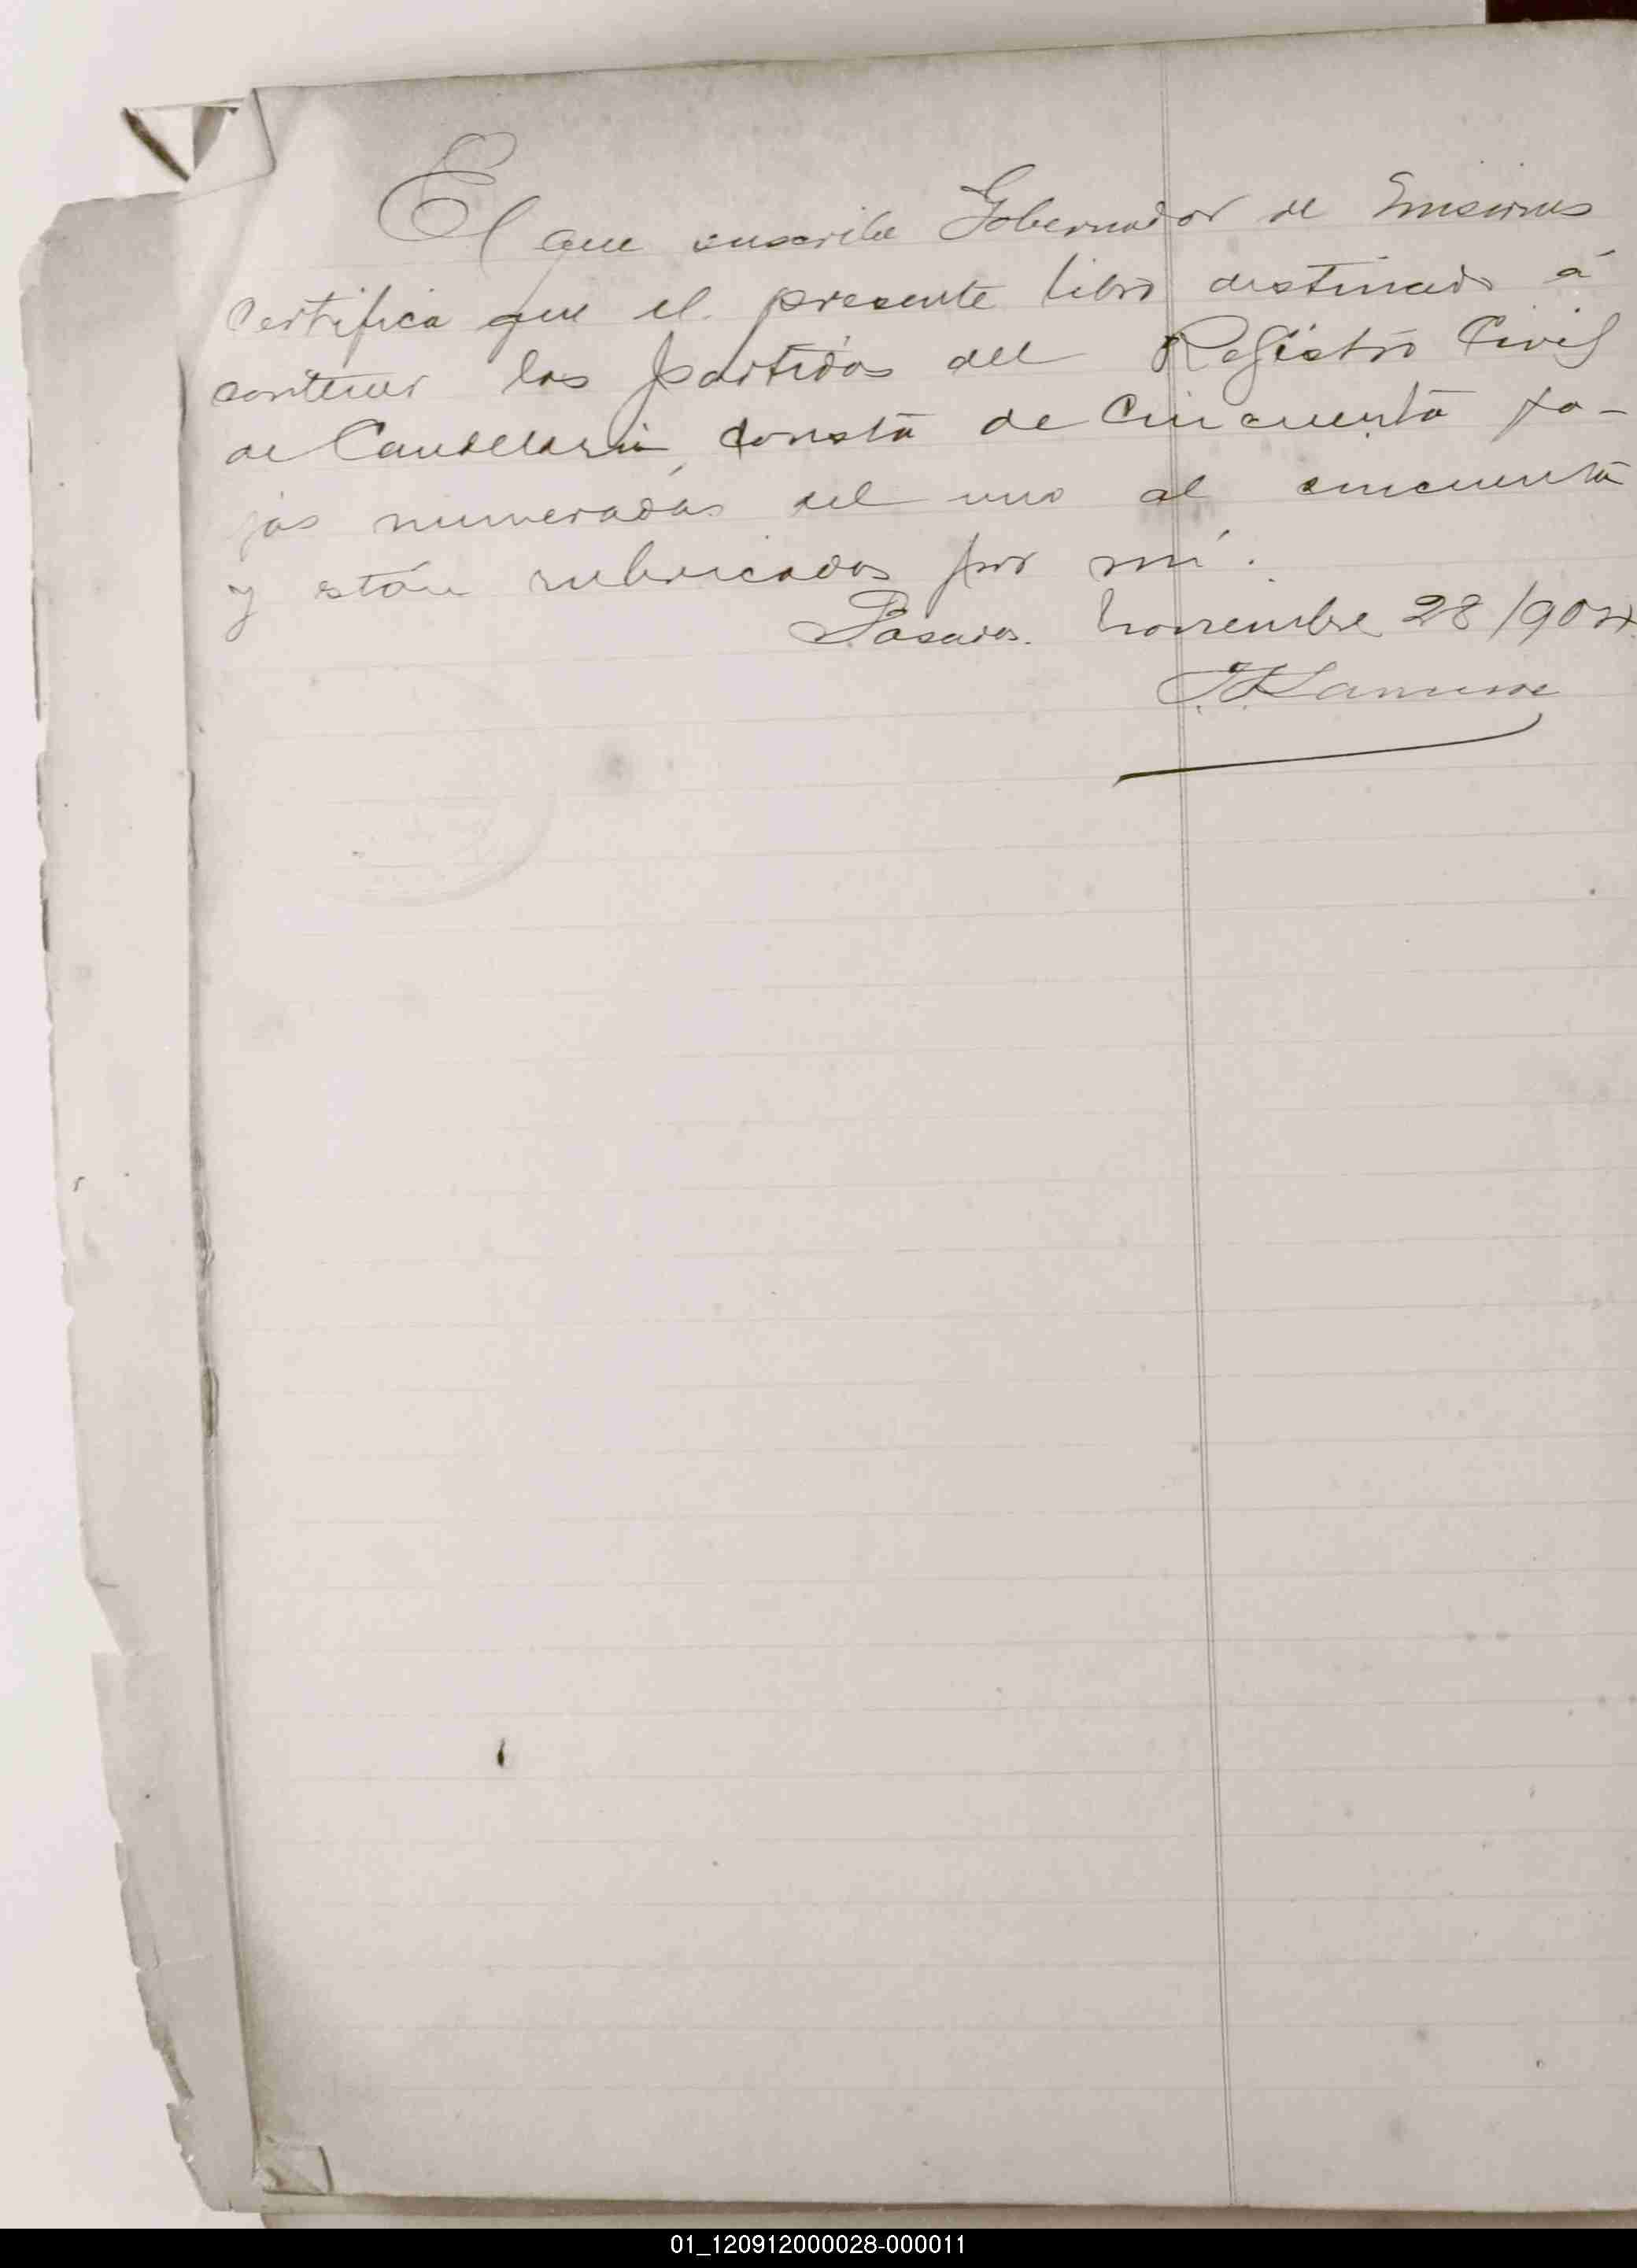 El que suscribe Gobernador de Misiones
certifica que el presente libro destinado á
contener las partidas del Registro Civil
de Candelaria, consta de cincuenta fo-
jas numeradas del uno al cincuenta
y están rubricadas por mí.
Posadas. Noviembre 28/904
J. J. Lanusse
01_120912000028-000011